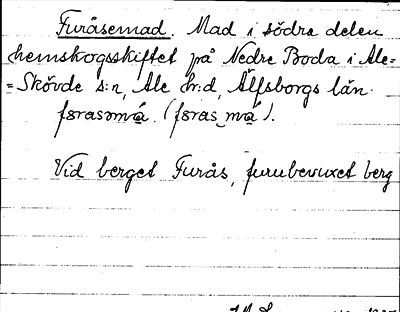 Furåsemad. Mad i södra delen
hemskogsskiftet på Nedre Boda i Ale=
=Skövde s:n, Ale hr:d, Älfsborgs län.
fɷrasəmá. (fɷras_má).
Vid berget Furås, furubevuxet berg